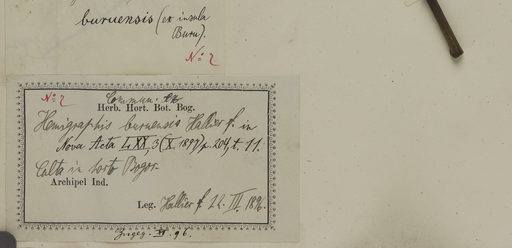 buruensis (ex insula
Buru).
No 2
No 2
Commun: ex
Herb. Hort. Bot. Bog.
Hemigraphis buruensis Hallier f. in
Nova Acta LXX, 3 (X. 1897) p. 204, t. 11.
Culta in horto Bogor.
Archipel Ind.
Leg. Hallier f. 22. III. 1896.
96.